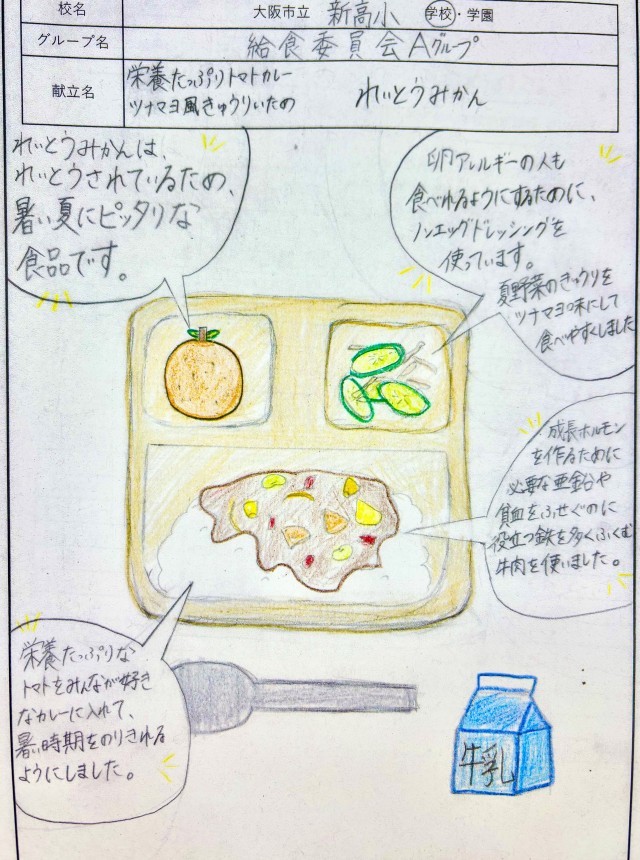 校名 大阪市立 新高小 学校・学園
グループ名 給食委員会Aグループ
献立名 栄養たっぷりトマトカレー
ツナマヨ風きゅうりいため れいとうみかん
れいとうみかんは、
れいとうされているため、
暑い夏にピッタリな
食品です。
卵アレルギーの人も
食べれるようにするために、
ノンエッグドレッシングを
使っています。
夏野菜のきゅうりを
ツナマヨ味にして
食べやすくしました
成長ホルモン
を作るために
必要な亜鉛や
貧血をふせぐのに
役立つ鉄を多くふくむ
牛肉を使いました。
栄養たっぷりな
トマトをみんなが好き
なカレーに入れて、
暑い時期をのりきれる
ようにしました。
牛乳